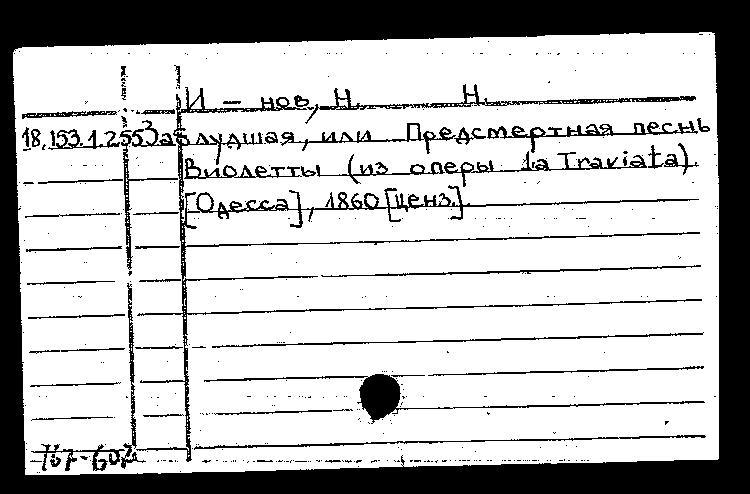 И – нов, Н. Н.
18.153.1.255 Заблудшая, или Предсмертная песнь
Виолетты (из оперы la Traviata).
[Одесса], 1860 [ценз.].